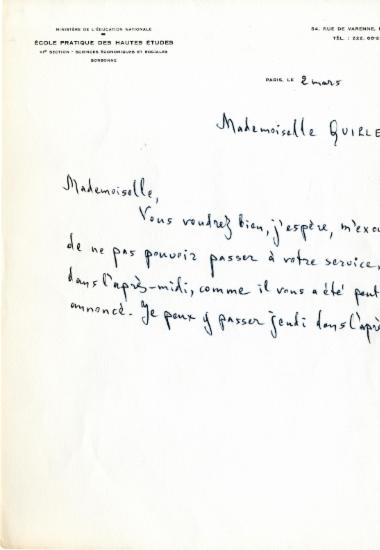 MINISTÈRE DE L'ÉDUCATION NATIONALE
ÉCOLE PRATIQUE DES HAUTES ÉTUDES
VIe SECTION - SCIENCES ÉCONOMIQUES ET SOCIALES
SORBONNE
54, RUE DE VARENNE,
TÉL. : 222.
PARIS, LE 2 mars
Mademoiselle
Mademoiselle,
Vous voudrez bien, j'espère,
de ne pas pouvoir passer à votre service,
dans l'après-midi, comme il vous a été
annoncé. Je peux y passer jeudi dans